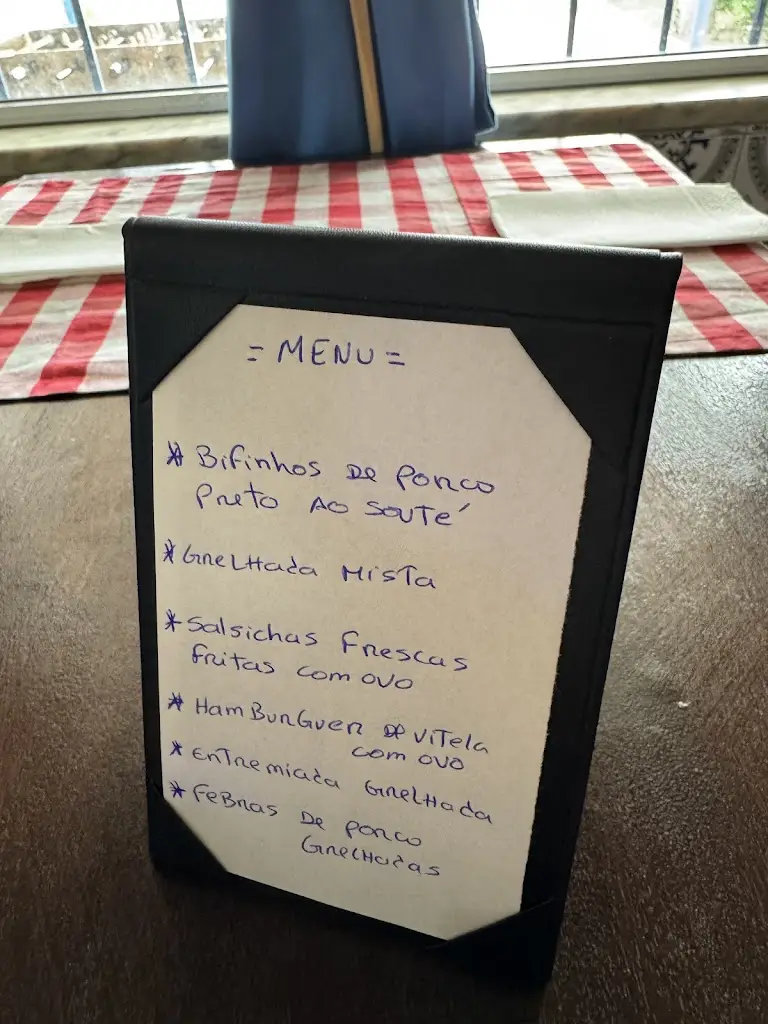 = MENU =
* Bifinhos DE Porco
Preto AO SOUTÉ
* GRELHADA MISTA
* Salsichas Frescas
fritas com ovo
* HamBurGuer DE VITela
com ovo
* Entremiada GRELHADA
* FeBras DE Porco
GRELHADAS